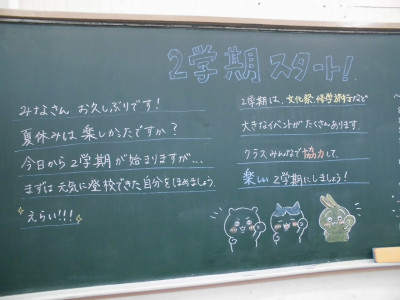 2学期スタート!
みなさん お久しぶりです!
夏休みは楽しかたですか?
今日から2学期が始まりますが...
まずは元気に登校できた自分をほめましょう。
えらい!!!
2学期は、文化祭、修学旅行など
大きなイベントがたくさんあります。
クラスみんなで協力して、
楽しい2学期にしましょう!